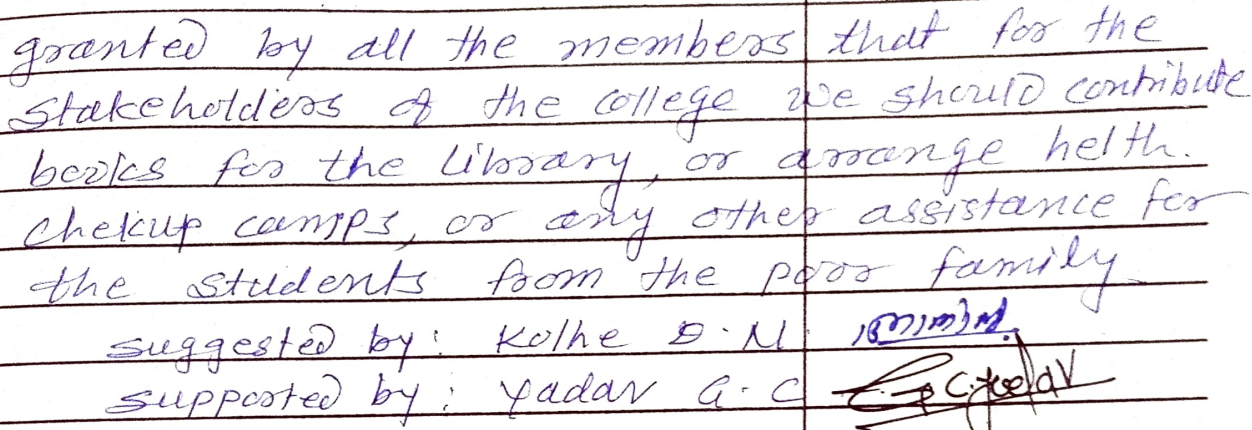 granted by all the members that for the
stakeholders of the college we should contribute
books for the library, or arrange helth.
chekup camps, or any other assistance for
the students from the poor family
suggested by : Kolhe D. N.
supported by : Yadav G. C